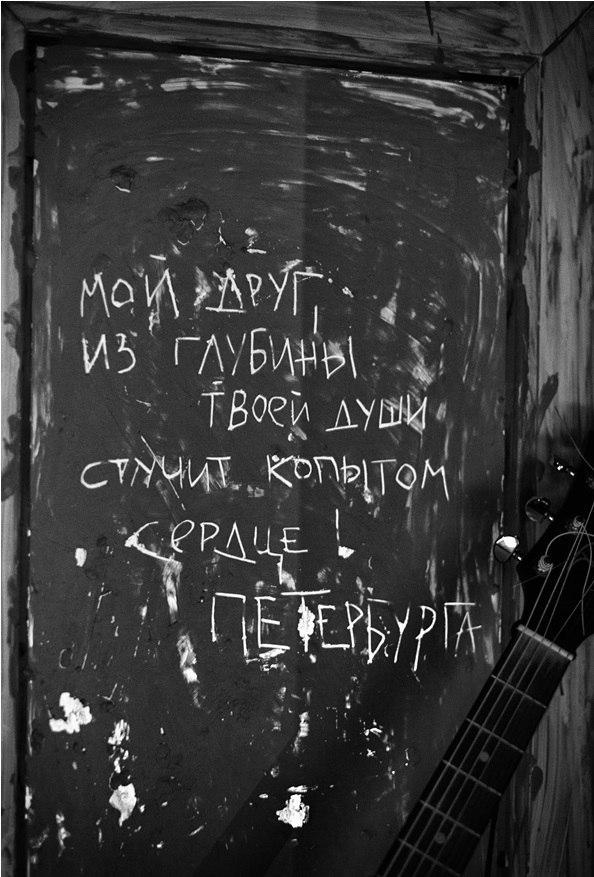 МОЙ ДРУГ,
ИЗ ГЛУБИНЫ
ТВОЕЙ ДУШИ
СТУЧИТ КОПЫТОМ
СЕРДЦЕ !
ПЕТЕРБУРГА